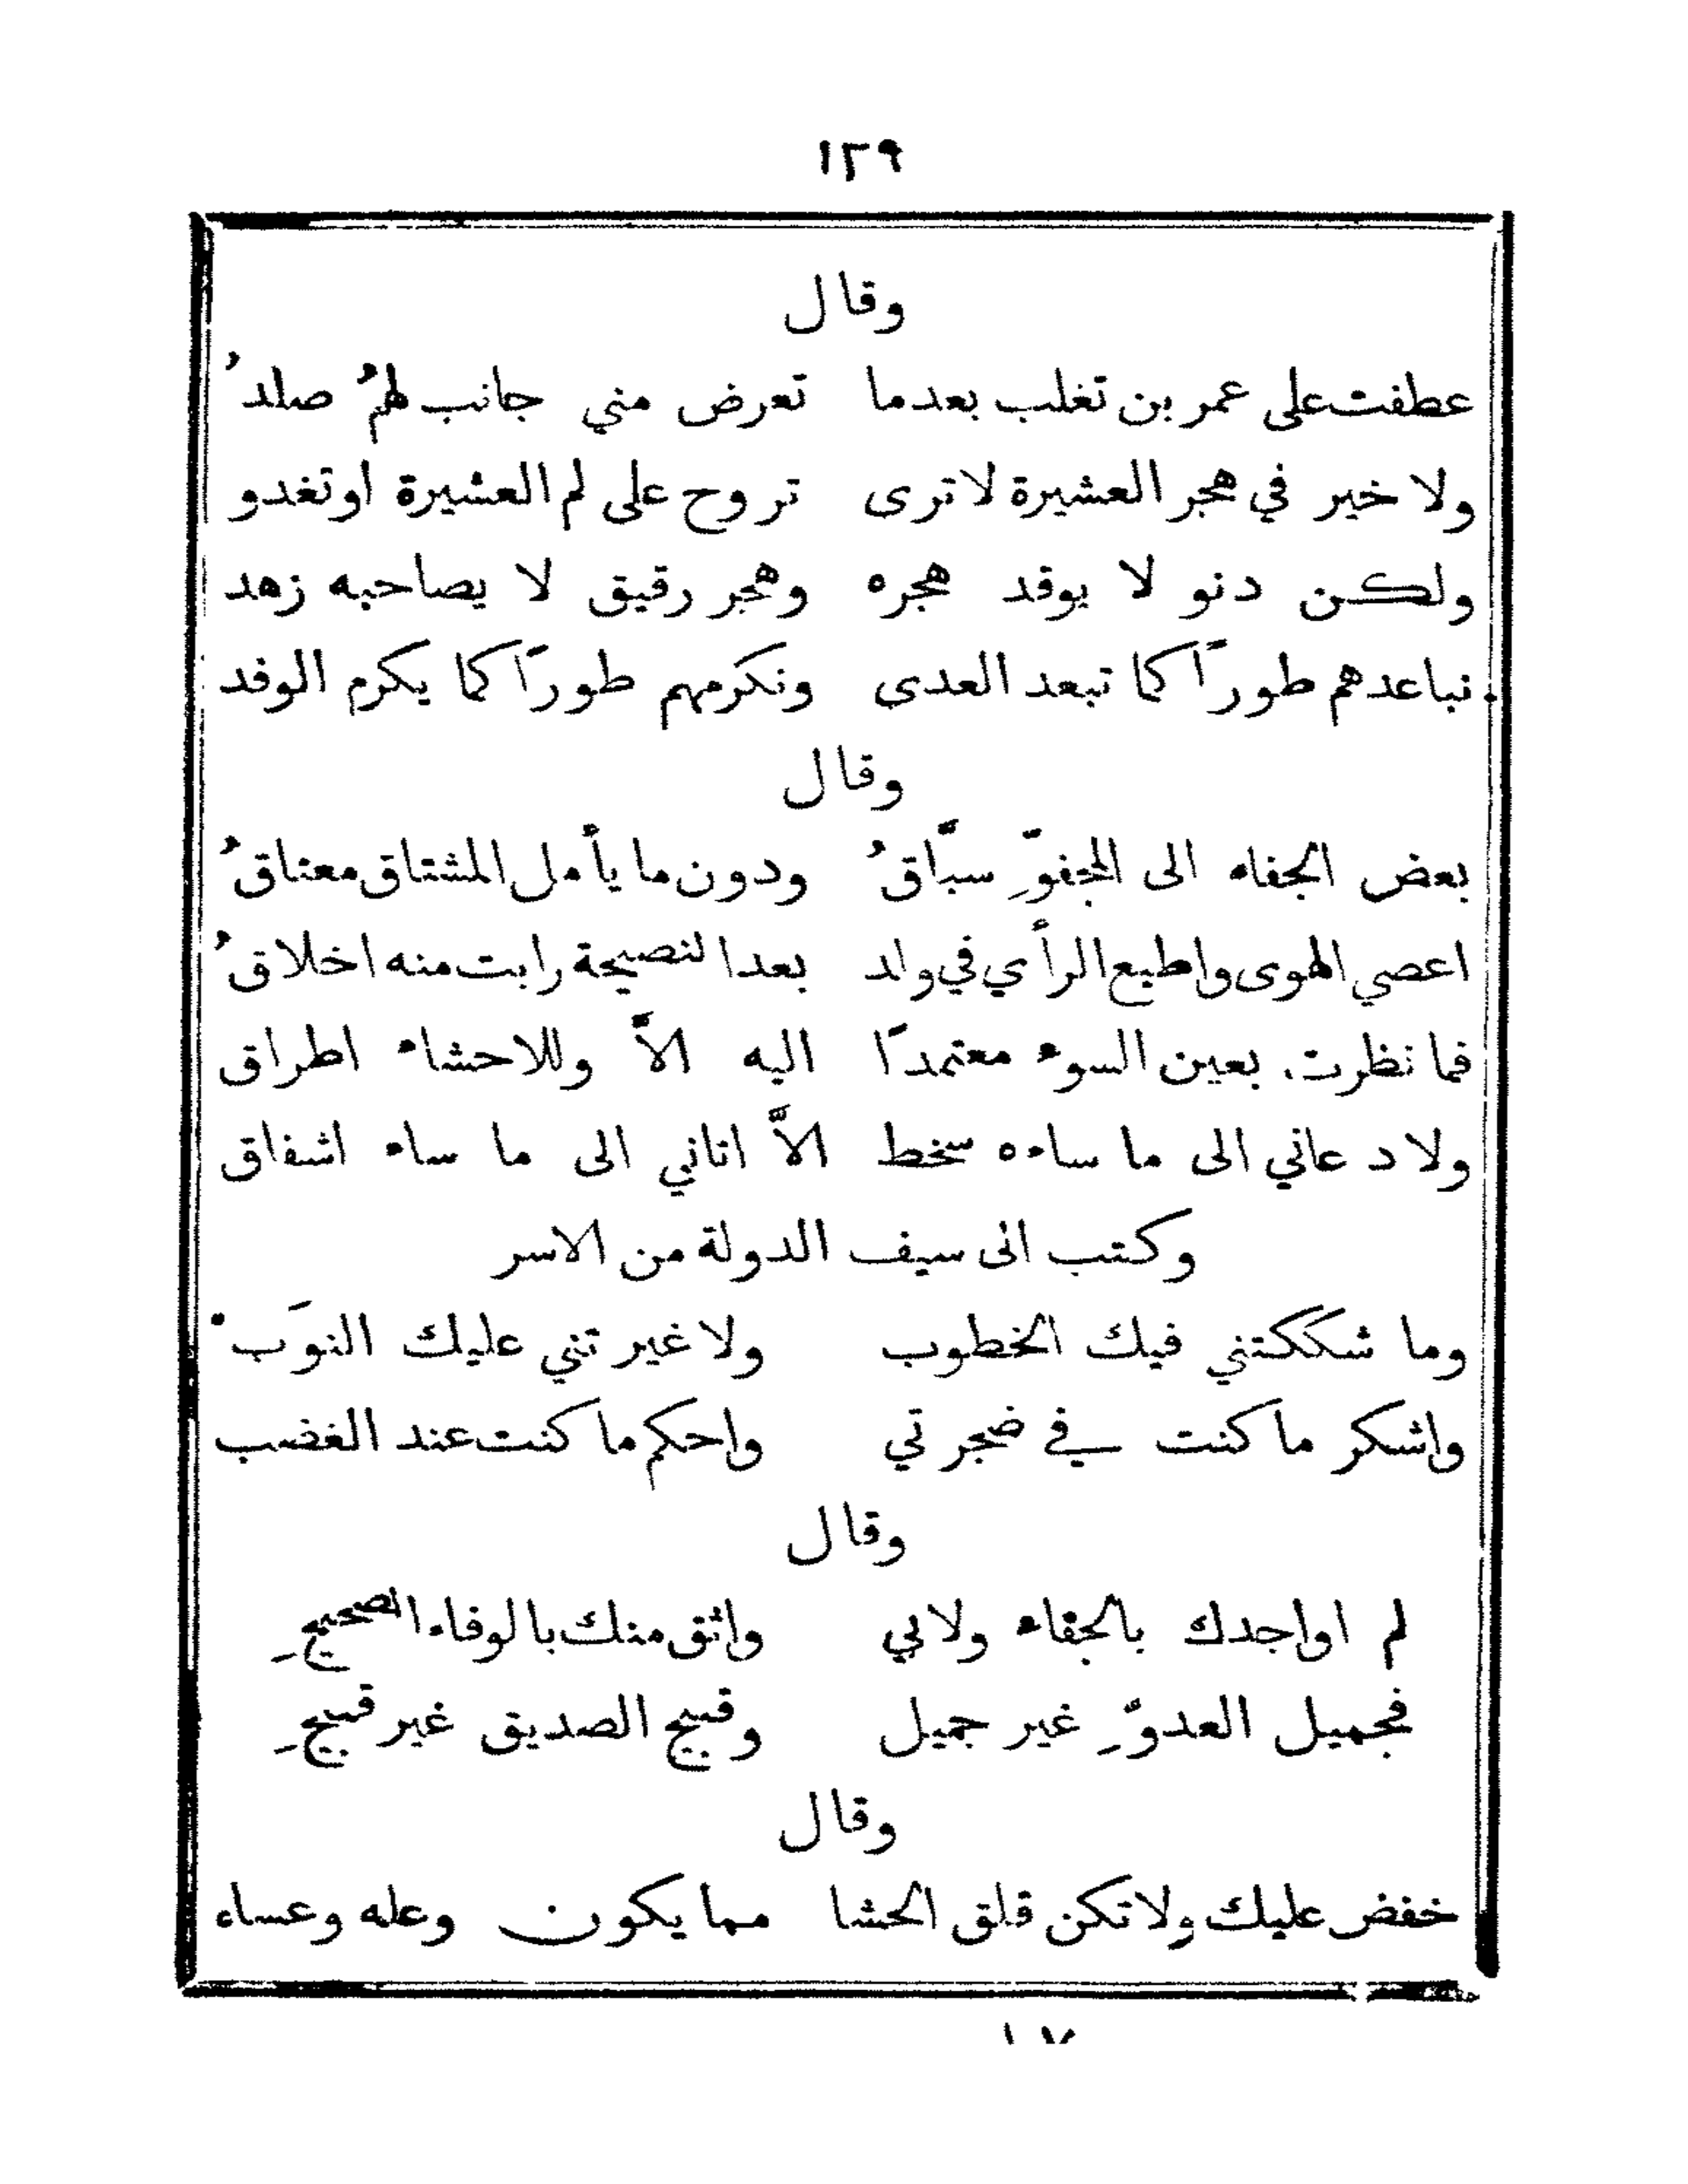 ١٢٩
وقال
عطفت على عمر بن تغلب بعدما تعرض مني جانب لهمُ صلدُ
ولا خير في هجر العشيرة لا ترى تروح على لم العشيرة او تغدو
ولكن دنو لا يوقد هجره وهجر رقيق لا يصاحبه زهد
نباعدهم طورًا كما تبعد العدى ونكرمهم طورًا كما يكرم الوفد
وقال
بعض الجفاه الى المجفوِّ سبَّاقُ ودون ما يأمل المشتاق معناقُ
اعصي الهوى واطيع الرأي في ولد بعد النصيحة رابت منه اخلاقُ
فما نظرت بعين السوء معتمدًا اليه الاَّ وللاحشاء اطراق
ولا دعاني الى ما ساءه سخط الاَّ اتاني الى ما ساء اشفاق
وكتب الى سيف الدولة من الاسر
وما شككتني فيك الخطوب ولا غير تني عليك النوَب
واشكر ما كنت في ضجرتي واحكم ما كنت عند الغضب
وقال
لم اواجدك بالجفاء ولابي واثق منك بالوفاء الصحيحِ
فجميل العدوِّ غير جميل وقبيح الصديق غير قبيحِ
وقال
خفض عليك ولا تكن قلق الحشا مما يكون وعله وعساء
١٧